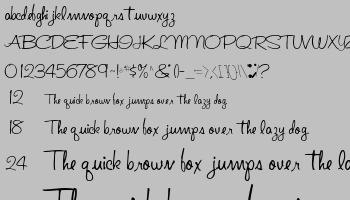 abcdefghijklmnopqrstuvwxyz
ABCDEFGHIJKLMNOPQRSTUVWXYZ
0123456789
12 The quick brown fox jumps over the lazy dog
18 The quick brown fox jumps over the lazy dog.
24 The quick brown fox jumps over the la